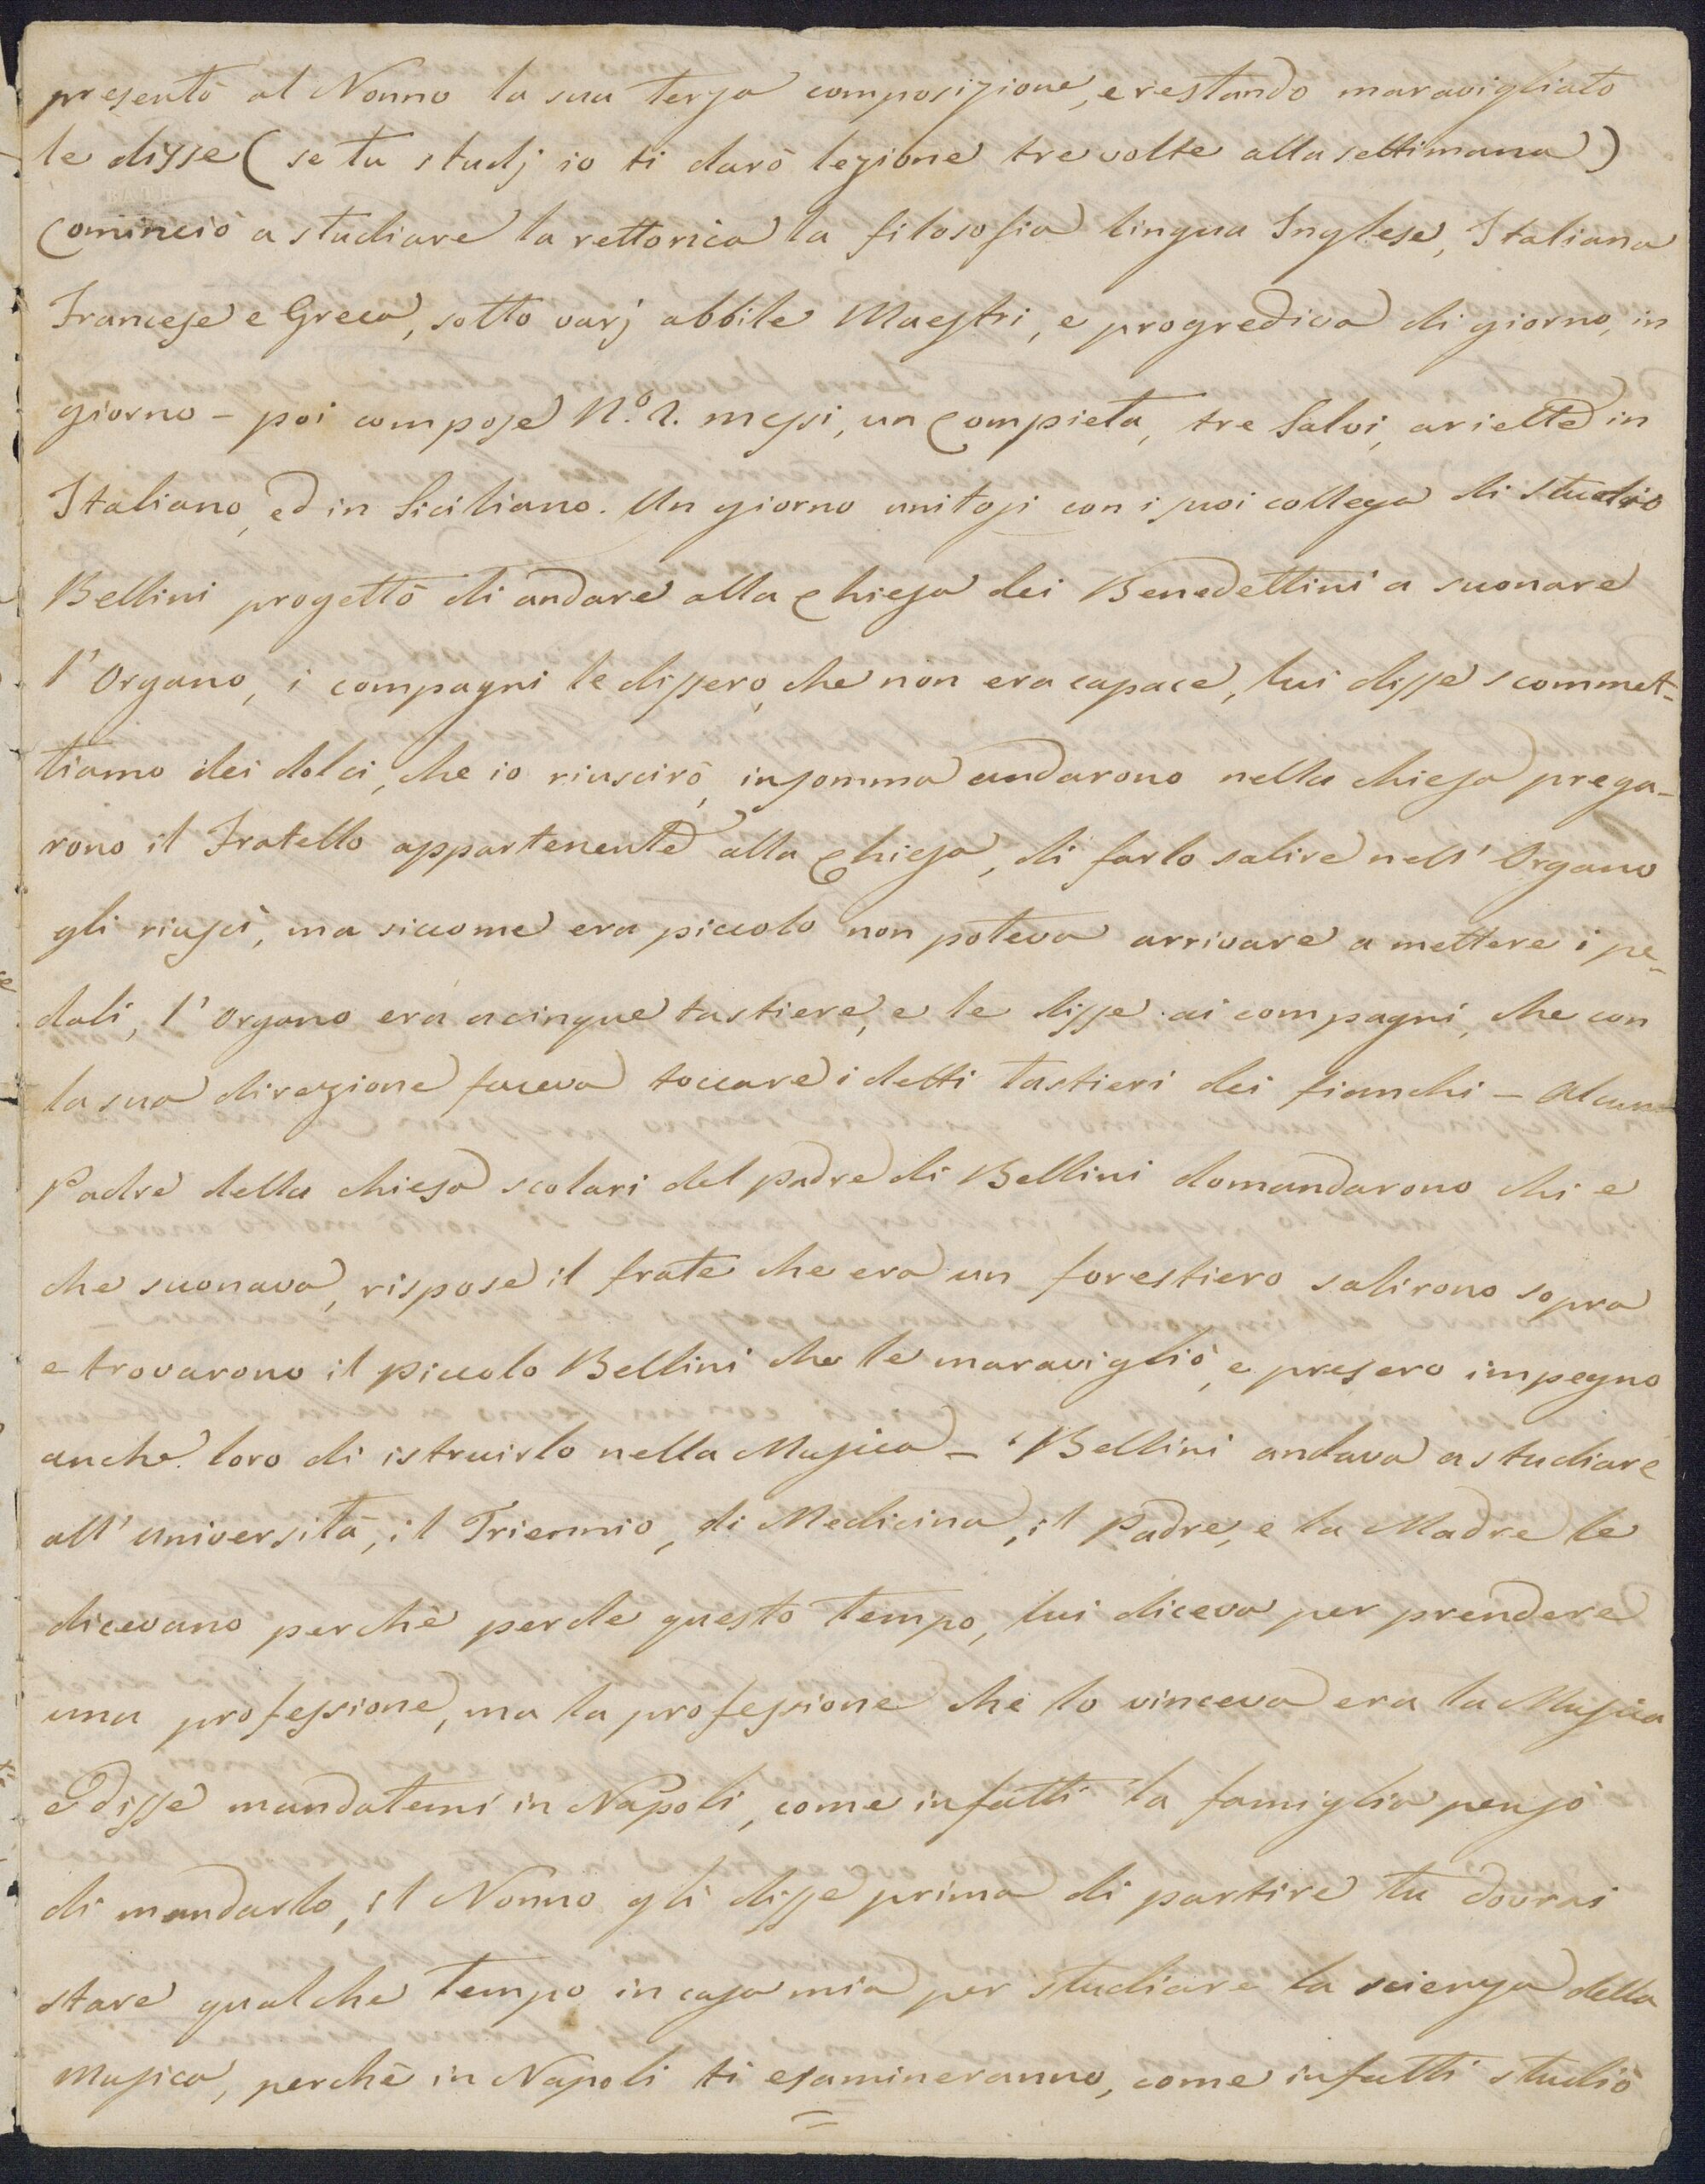 presentò al Nonno la sua terza composizione, e restando maravigliato
le disse (se tu studj io ti darò lezione tre volte alla settimana)
Cominciò a studiare la rettorica la filosofia lingua Inglese, Italiana
Francese e Greca, sotto varj abbile Maestri, e progrediva di giorno, in
giorno - poi compose N.o 2. messi, un Compieta, tre Salvi, ariette in
Italiano, ed in Siciliano. Un giorno unitosi con i suoi collega di studio
Bellini progettò di andare alla Chiesa dei Benedettini a suonare
l'Organo, i compagni le dissero, che non era capace, lui disse scommet-
tiamo dei dolci, che io riuscirò, insomma andarono nella chiesa prega-
rono il Fratello appartenente alla Chiesa, di farlo salire nell'Organo
gli riuscì, ma siccome era piccolo non poteva arrivare a mettere i pe-
dali, l'organo era a cinque tastiere, e le disse ai compagni, che con
la sua direzione faceva toccare i detti tastieri dei fianchi - Alcun
Padre della chiesa scolari del padre di Bellini domandarono chi e
che suonava, rispose il frate che era un forestiero salirono sopra
e trovarono il piccolo Bellini che le maravigliò, e presero impegno
anche loro di istruirlo nella Musica - Bellini andava a studiare
all'università, il Triennio, di Medicina, il Padre, e la Madre le
dicevano perchè perde questo tempo, lui diceva per prendere
una professione, ma la professione che lo vinceva era la Musica
e disse mandatemi in Napoli, come infatti la famiglia pensò
di mandarlo, il Nonno gli disse prima di partire tu dovrai
stare qualche tempo in casa mia per studiare la scienza della
Musica, perchè in Napoli ti esamineranno, come infatti studiò